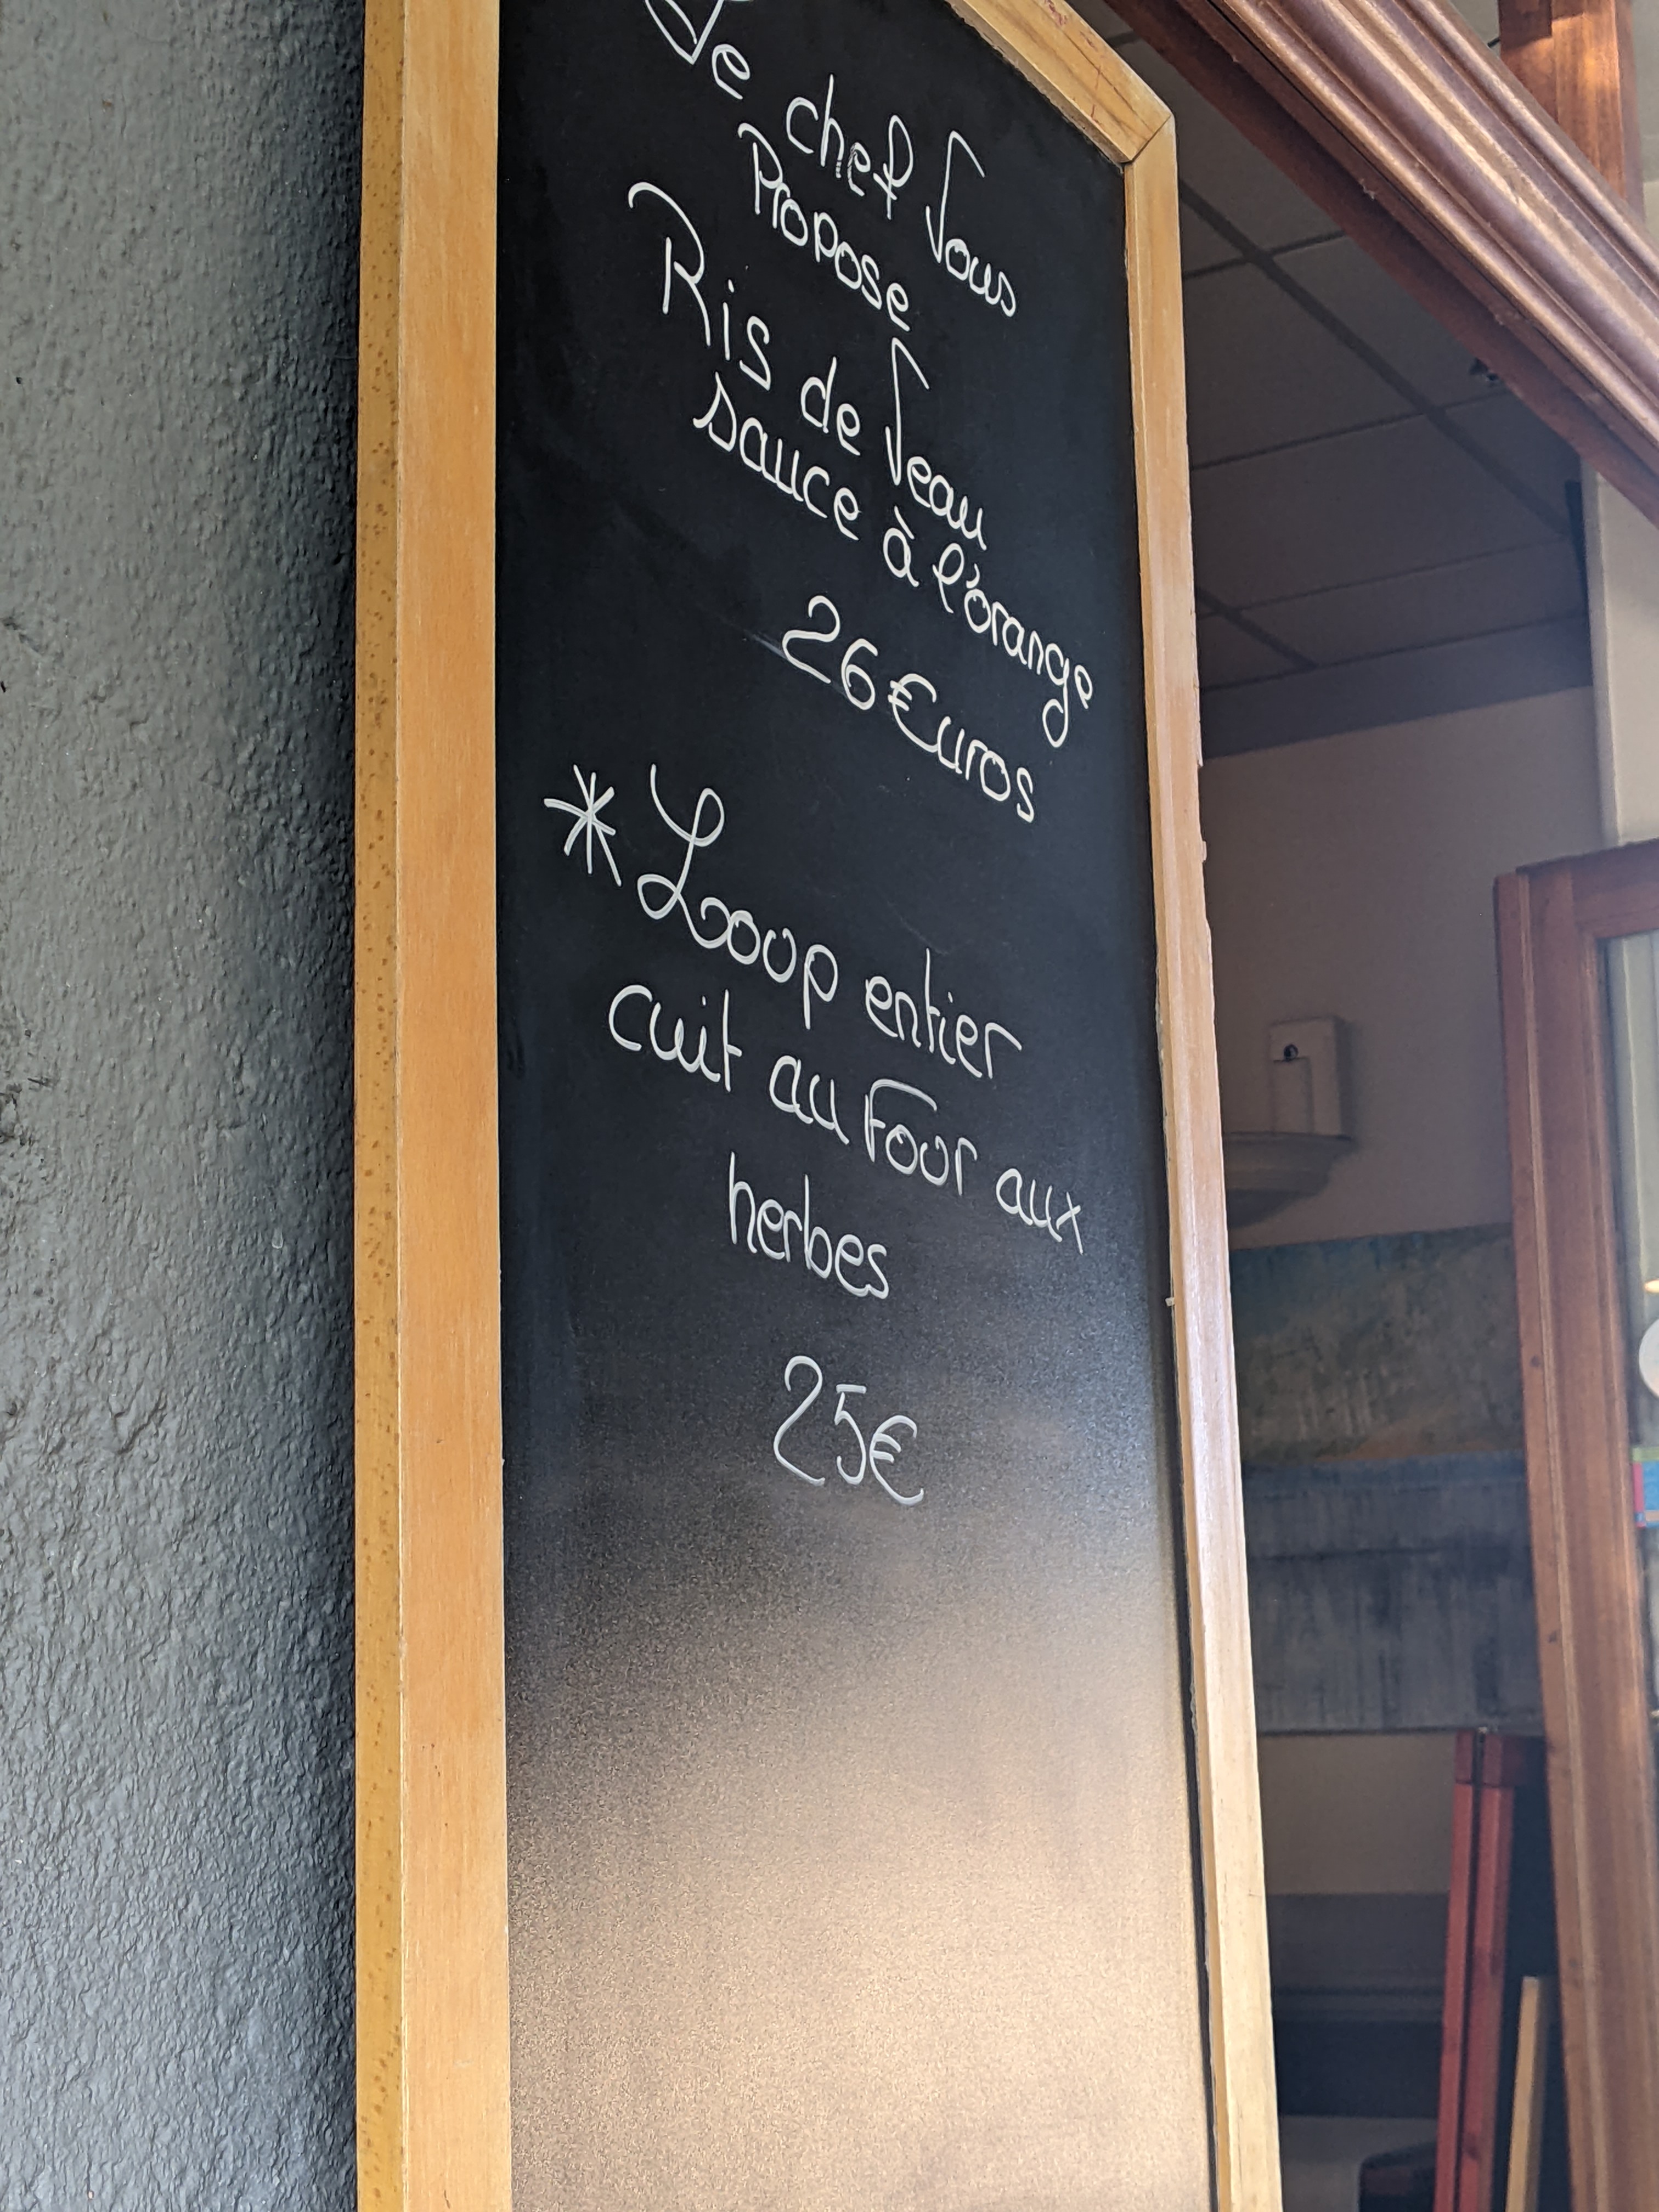 Le chef Vous
Propose
Ris de Veau
sauce à l'orange
26 €uros
* Loup entier
cuit au Four aux
herbes
25€